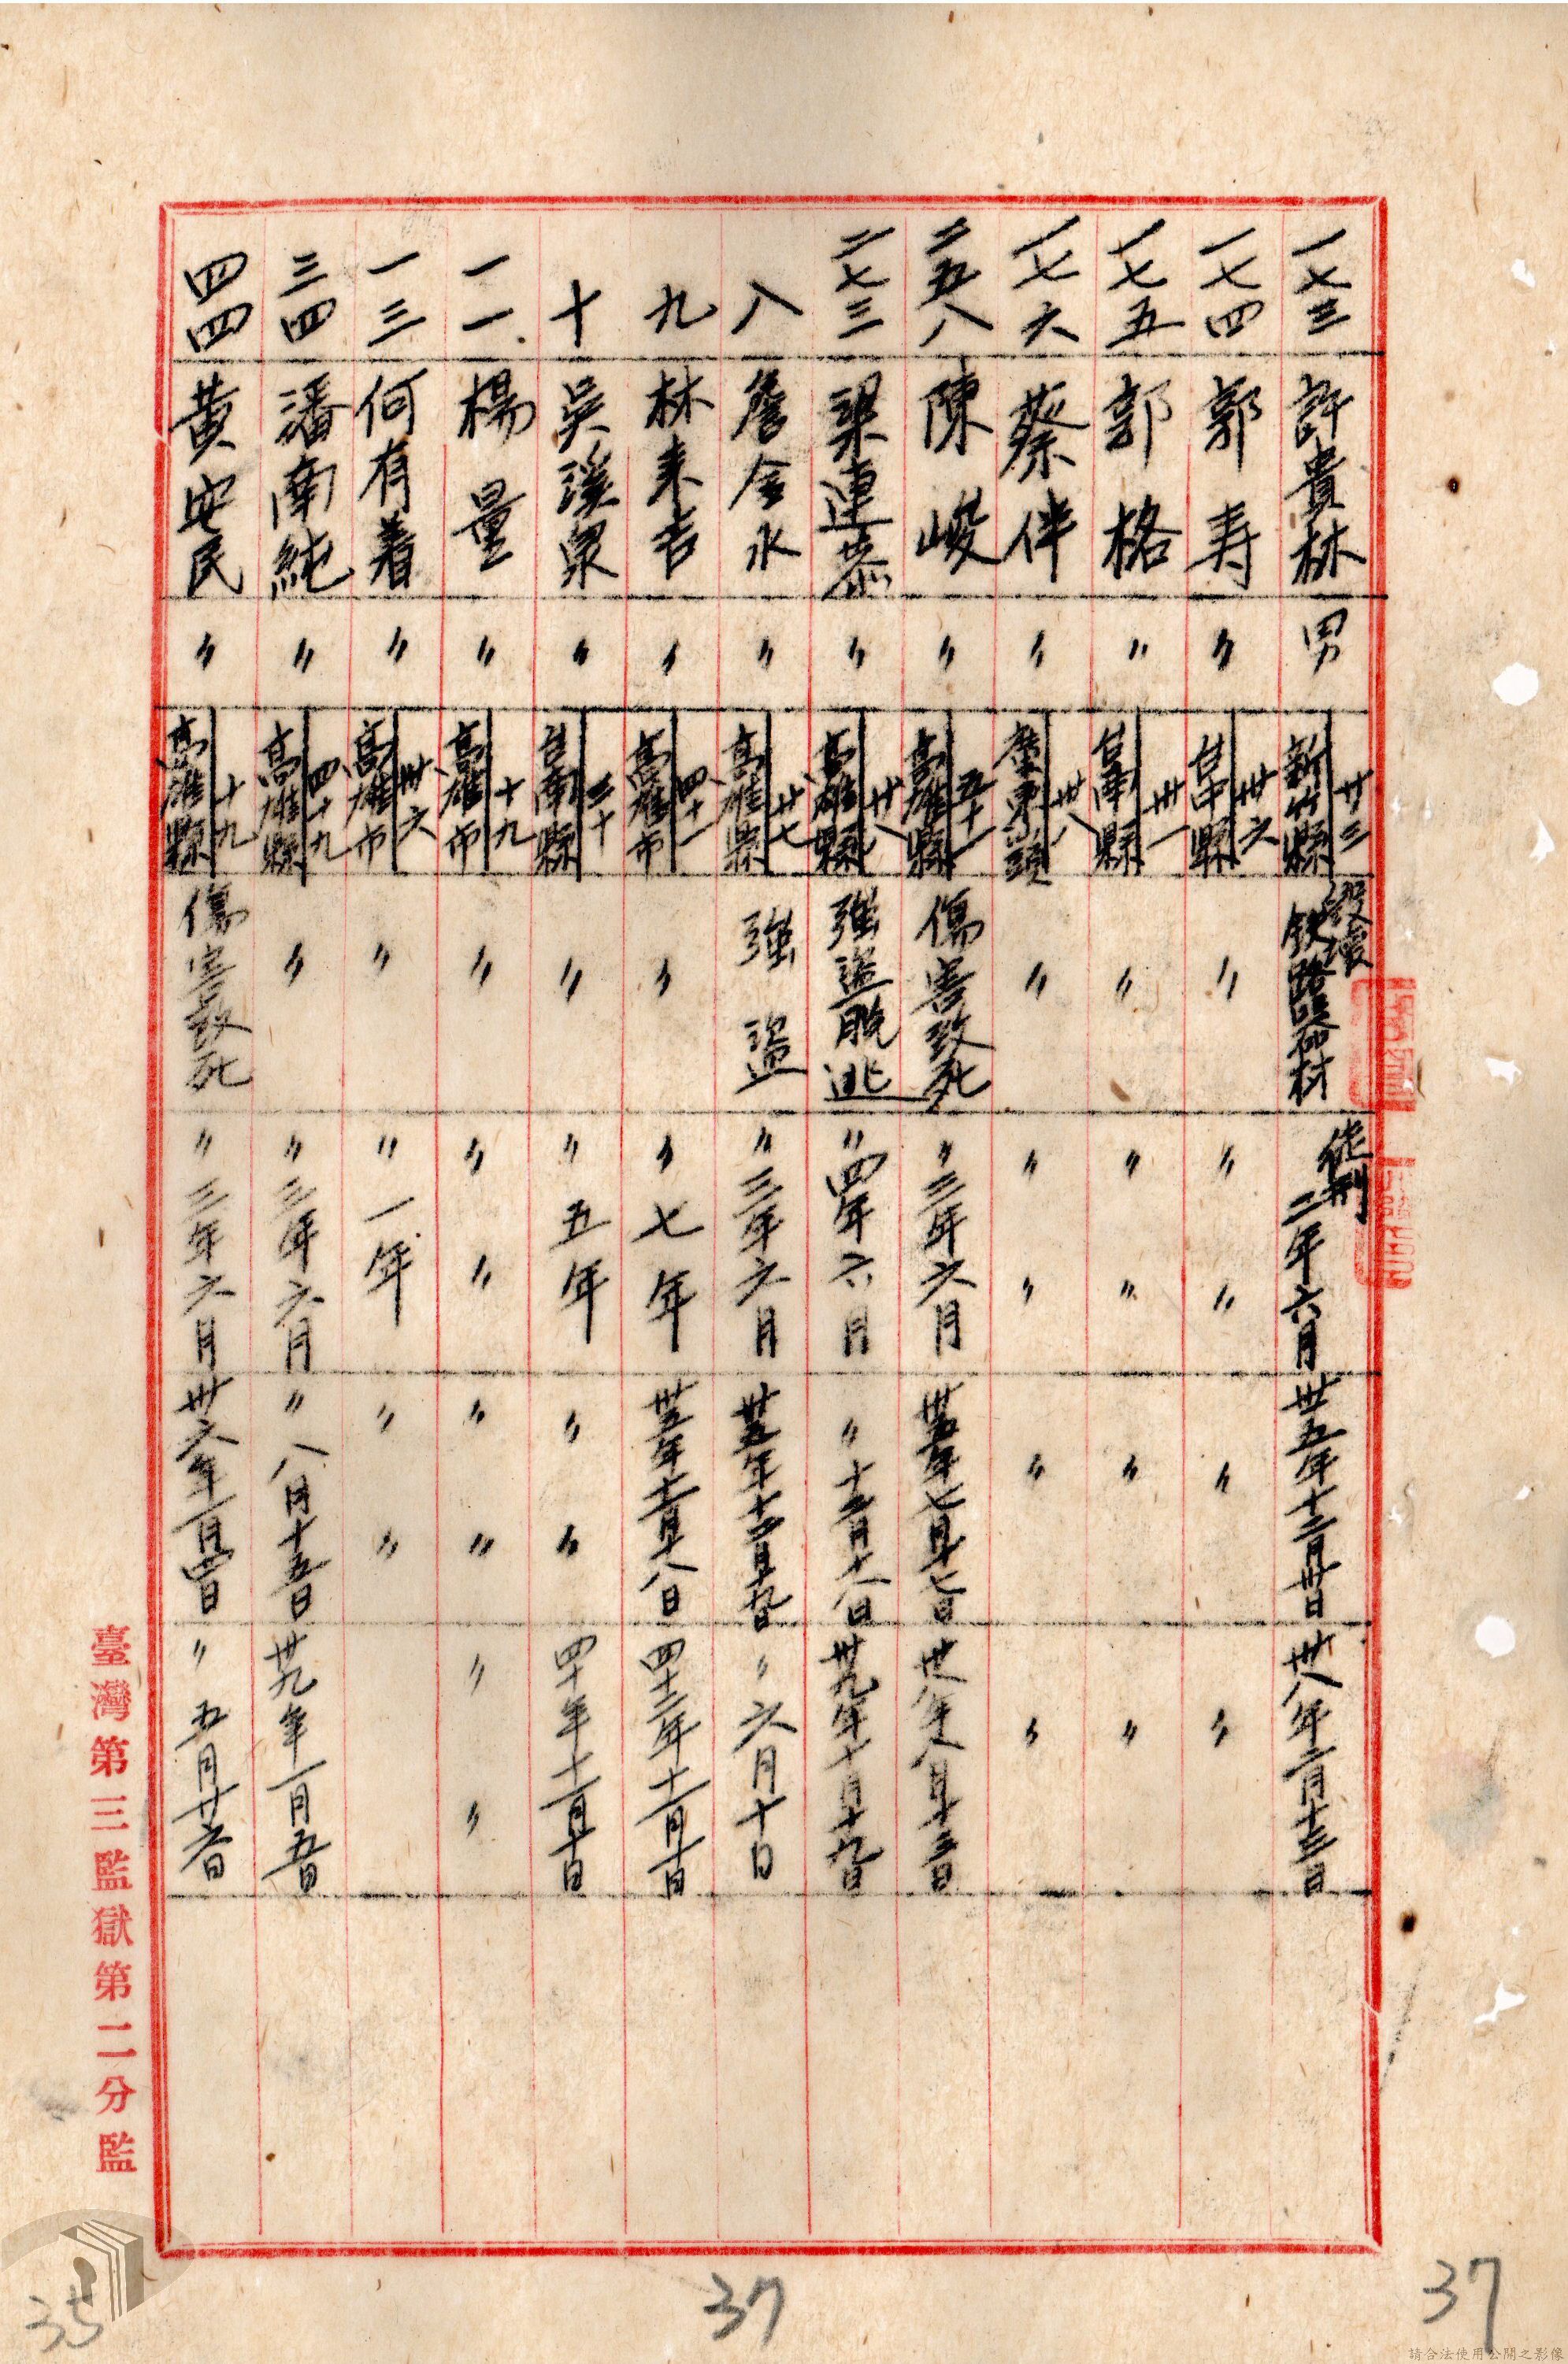 一七三 許貴林 男 廿三 新竹縣 毀壞鉄路器材 徒刑二年六月 卅五年十二月卅日 卅八年二月十三日
一七四 郭寿 〃 卅六 台中縣 〃 〃 〃 〃 〃
一七五 郭格 〃 卅一 台南縣 〃 〃 〃 〃 〃
一七六 蔡伴 〃 卅八 廣東汕頭 〃 〃 〃 〃 〃
二五八 陳峻 〃 五十一 高雄縣 傷害致死 〃三年六月 卅五年七月十七日 卅八年八月十三日
二七三 梁連恭 〃 廿八 高雄縣 強盜脫逃 〃四年六月 〃十二月十八日 卅九年十月十九日
八 詹金水 〃 廿七 高雄縣 強盜 〃三年六月 卅五年十二月十九日 〃六月十日
九 林来吉 〃 四十一 高雄市 〃 〃七年 卅五年十一月十八日 四十二年十一月十日
十 吳溪泉 〃 三十 台南縣 〃 〃五年 〃 〃 四十年十一月十日
一一 楊量 〃 十九 高雄市 〃 〃 〃 〃 〃 〃 〃
一三 何有着 〃 卅六 高雄市 〃 〃一年 〃 〃
三四 潘南純 〃 四十九 高雄縣 〃 〃三年六月 〃八月十五日 卅九年一月五日
四四 黃安民 〃 十九 高雄縣 傷害致死 〃三年六月 卅六年一月四日 〃五月廿六日
臺灣第三監獄第二分監
35
37
37
請合法使用公開之影像